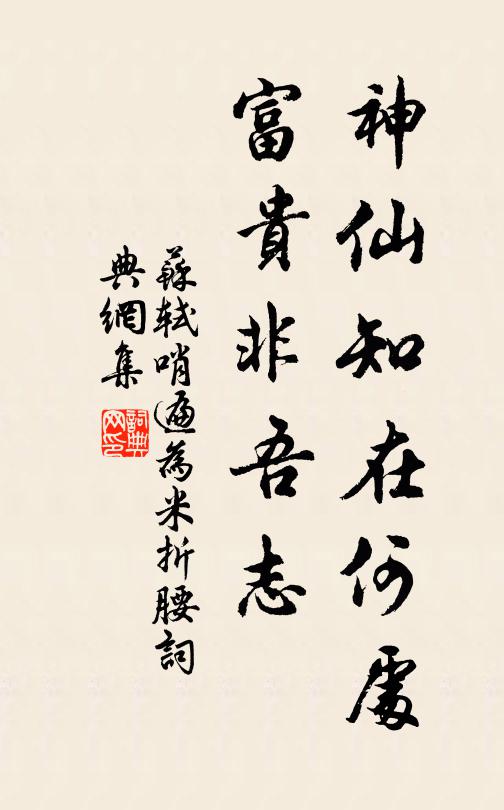 神仙知在何處
富貴非吾志
蘇軾哨遍為米折腰詞
典網集
詞典網印